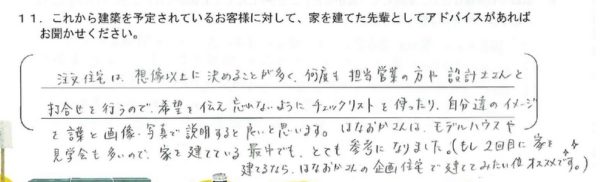 １１．これから建築を予定されているお客様に対して、家を建てた先輩としてアドバイスがあれば
お聞かせください。
注文住宅は、想像以上に決めることが多く、何度も担当営業の方や設計士さんと
打合せを行うので、希望を伝え忘れないようにチェックリストを使ったり、自分達のイメージ
を言葉と画像・写真で説明すると良いと思います。はなおかさんは、モデルハウスや
見学会も多いので、家を建てている最中でも、とても参考になりました。(もし2回目に家を
建てるなら、はなおかさんの企画住宅で建ててみたい位オススメです。)